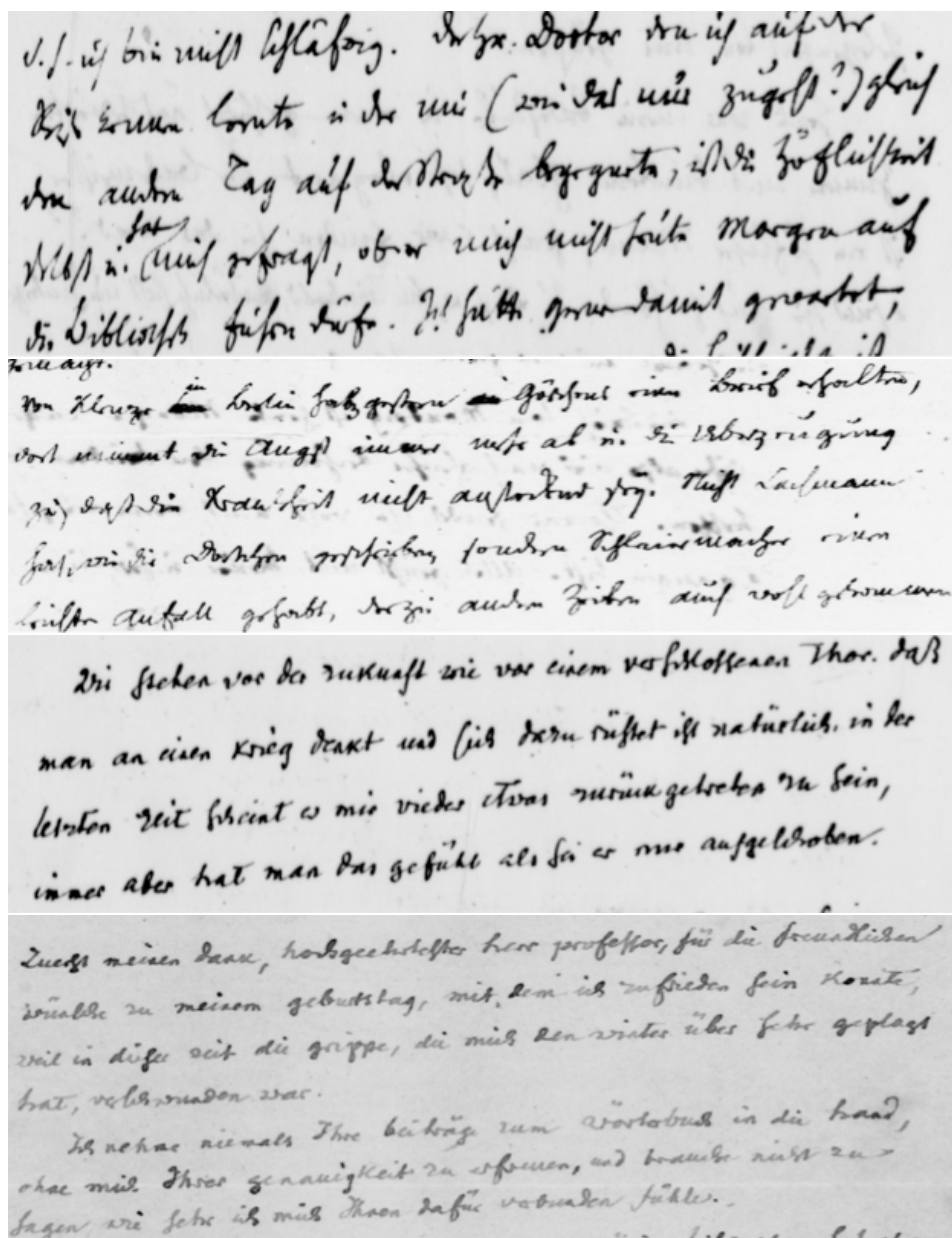 d. h. ich bin nicht schläfrig. Der Hr. Doctor den ich auf der
Reise kennen lernte u der mir (wie das nur zugeht?) gleich
den andern Tag auf der Straße begegnete, ist die Höflichkeit
selbst u. hat mich gefragt, ob er mich nicht heute Morgen auf
die Bibliothek führen dürfe. Ich hätte gerne damit gewartet,
von Klenze in Berlin haben gestern Göschens einen Brief erhalten,
dort nimmt die Angst immer mehr ab u. die Ueberzeugung
zu, daß die Krankheit nicht ansteckend sey. Nicht Lachmann
hat, wie die Dortchen geschrieben, sondern Schleiermacher einen
leichten Anfall gehabt, der zu andern Zeiten auch wohl gekommen
Wir stehen vor der zukunft wie vor einem verschlossenen Thor. daß
man an einen krieg denkt und sich dazu rüstet ist natürlich. in der
letzten zeit scheint er mir wieder etwas zurückgetreten zu sein,
immer aber hat man das gefühl als sei er nur aufgeschoben.
Zuerst meinen dank, hochgeehrtester herr professor, für die freundlichen
wünsche zu meinem geburtstag, mit dem ich zufrieden sein konnte,
weil in dieser zeit die grippe, die mich den winter über sehr geplagt
hat, verschwunden war.
Ich nehme niemals Ihre beiträge zum wörterbuch in die hand,
ohne mich Ihrer genauigkeit zu erfreuen, und brauche nicht zu
sagen wie sehr ich mich Ihnen dafür verbunden fühle.